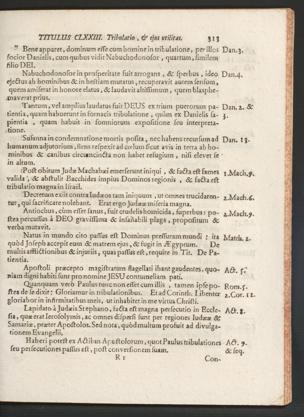 TITULUS CLXXIII. Tribulatio, & ejus utilitas. 313
Bene apparet, dominum esse cum homine in tribulatione, per illos Dan. 3.
socior Danielis, cum quibus vidit Nabuchodonosor, quartum, similem
filio DEI.
Nabuchodonosor in prosperitate fuit arrogans, & superbus, ideo Dan. 4.
ejectus ab hominibus & in bestiam mutatus, recuperavit autem sensum,
quem amiserat in honore elatus, & laudavit altissimum, quem blasphe-
maverat prius.
Tantum, vel amplius laudatus fuit DEUS ex trium puerorum pa- Dan. 2. &
tientia, quam habuerunt in fornacis tribulatione, quàm ex Danielis sa- 3.
pientia, quam habuit in somniorum expositione seu interpreta-
tione.
Susanna in condemnatione mortis posita, nec habens recursum ad Dan. 13.
humanum adjutorium, flens respexit ad cœlum sicut avis in terra ab ho-
minibus & canibus circumcincta non habet refugium, nisi elevet se
in altum.
Post obitum Judæ Machabæi emerserunt iniqui, & facta est fames 1. Mach. 9.
valida, & absulit Bacchides impios Dominos regionis, & facta est
tribulatio magna in Israël.
Decretum exiit contra Judæos tam iniquum, ut omnes trucidaren- 2. Mach. 6.
tur, qui sacrificare nolebant. Erat ergo Judæis miseria magna.
Antiochus, cùm esset fanus, fuit crudelis homicida, superbus: po- 2. Mach. 9.
stea percussus à DEO gravissima & insanabili plaga, propositum &
verba mutavit.
Natus in mundo cito passus est Dominus pressuram mundi: ita Matth. 2.
quòd Joseph accepit eum & matrem ejus, & fugit in Ægyptum. De
multis afflictionibus & injuriis, quas passus est, require in Tit. De Pa-
tientia.
Apostoli præcepto magistratum flagellati ibant gaudentes, quo- Act. 5.
niam digni habiti sunt pro nomine JESU contumeliam pati.
Quanquam verò Paulus tunc non esset cum illis, tamen ipse po- Rom. 5.
stea de se dicit: Gloriamur in tribulationibus. Et ad Corinth. Libenter 2. Cor. 12.
gloriabor in infirmitatibus meis, ut inhabitet in me virtus Christi.
Lapidato à Judæis Stephano, facta est magna persecutio in Eccle- Act. 8.
sia, quæ erat Ierosolymis, ac omnes dispersi sunt per regiones Judææ &
Samariæ, præter Apostolos. Sed nota, quòd multum profuit ad divulga-
tionem Evangelii,
Haberi potest ex Actibus Apostolorum, quot Paulus tribulationes Act. 9.
seu persecutiones passus est, post conversionem suam, & seq.
R 1 Con-